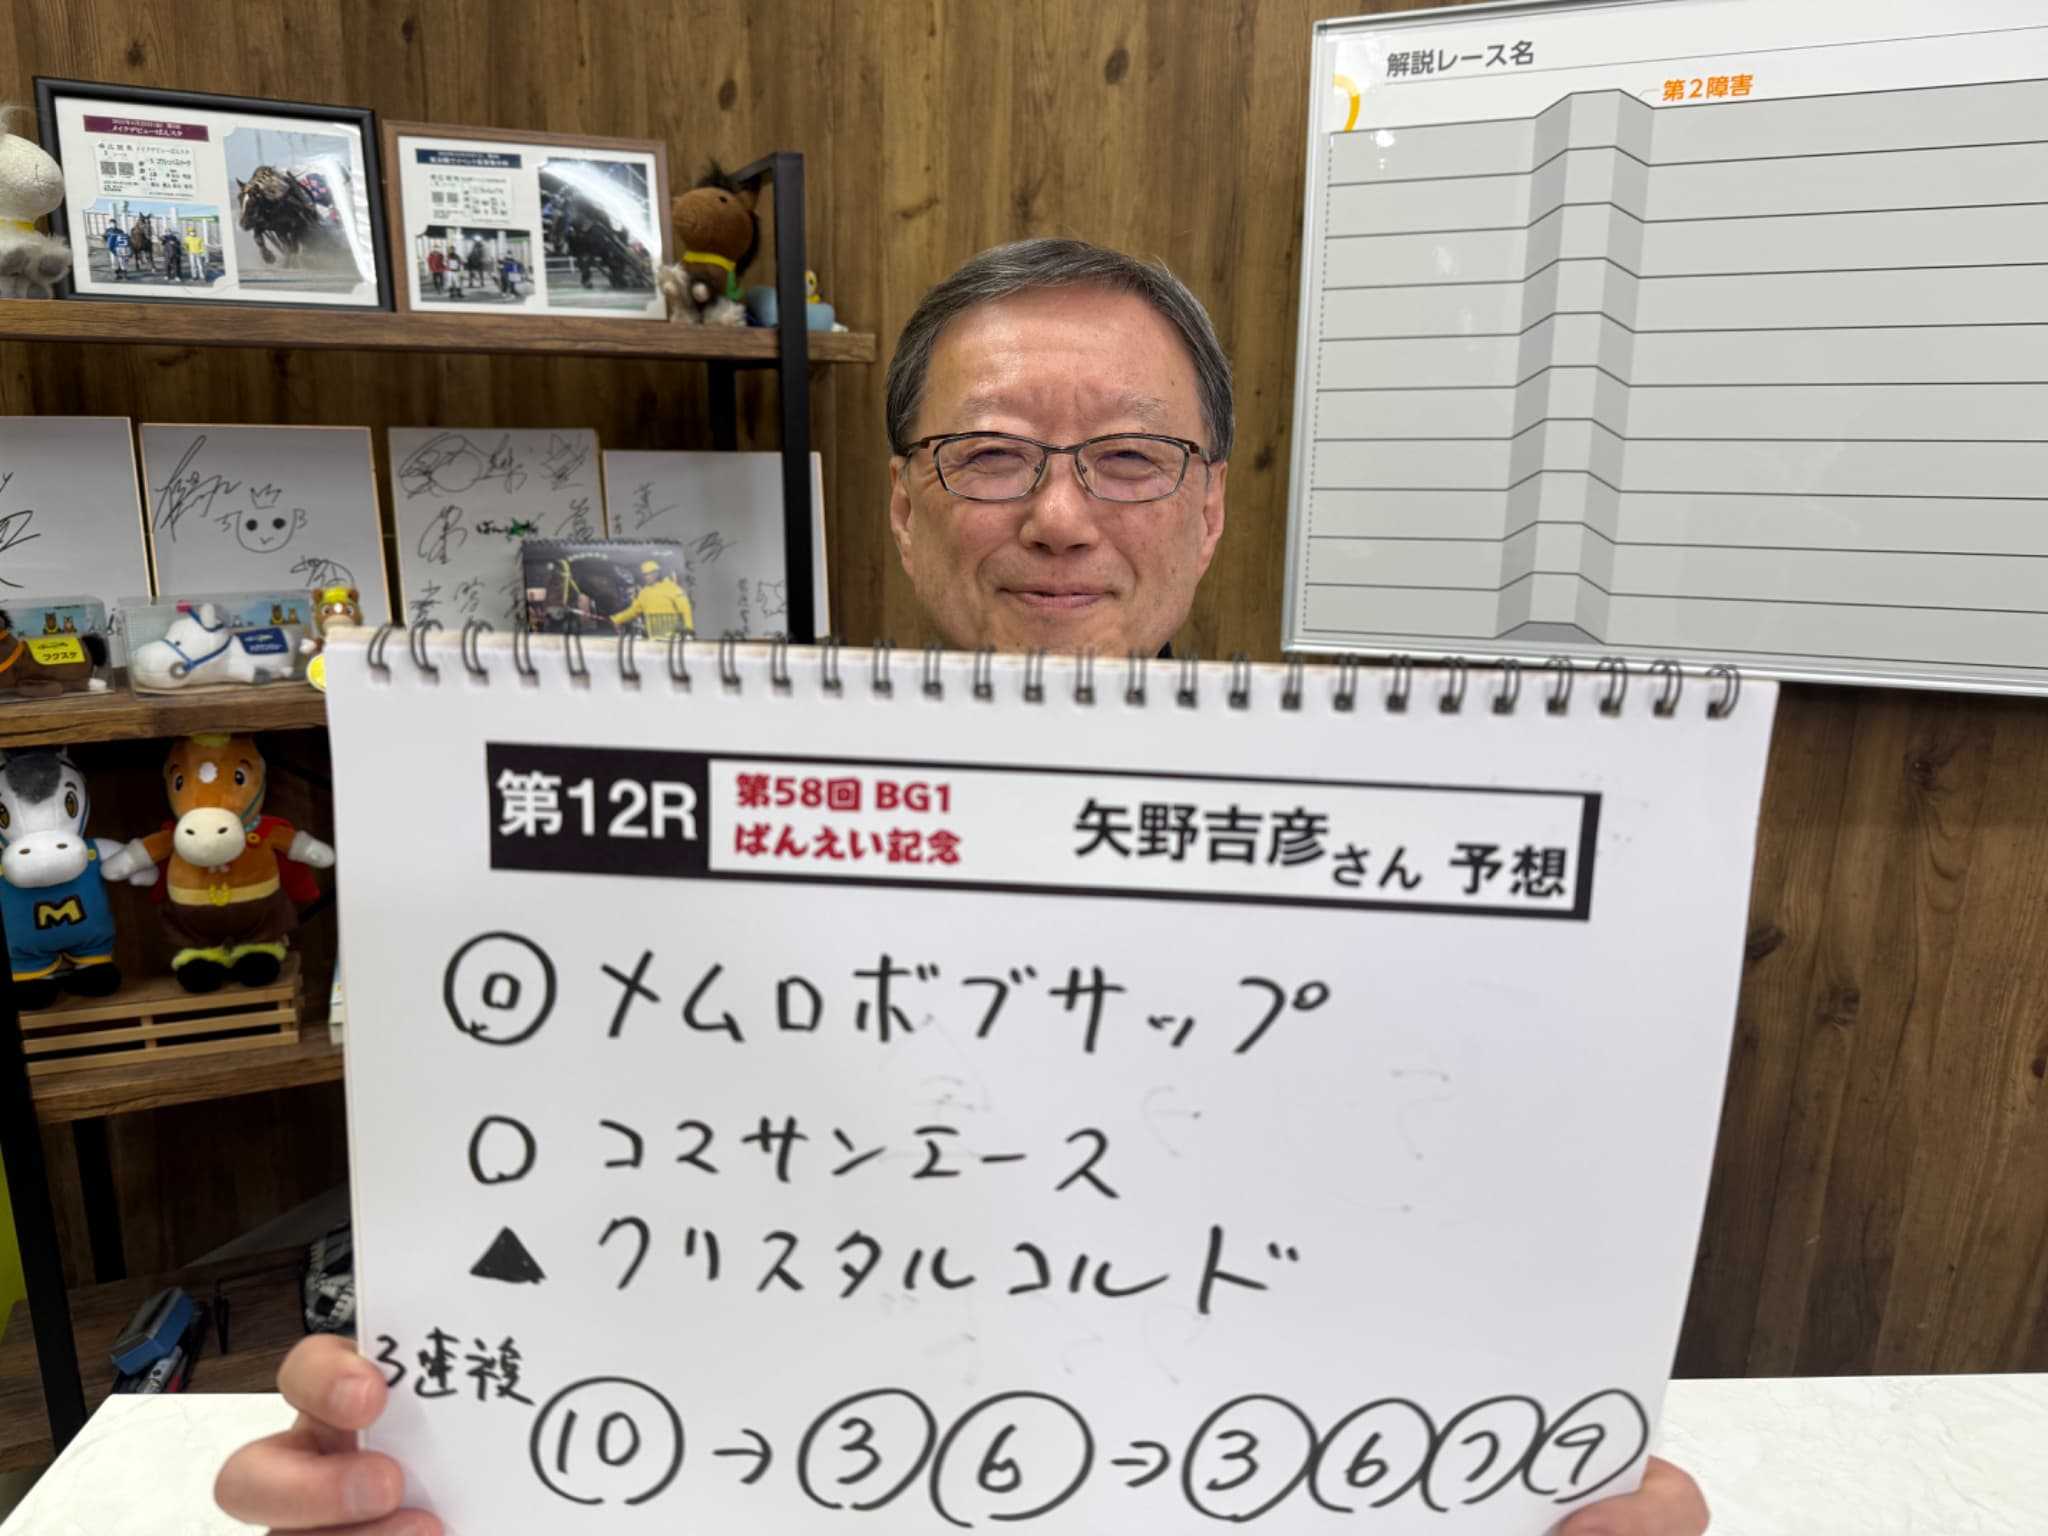 解説レース名
第2障害
メイクデビューばんスタ
フクスケ
M
第12R
第58回 BG1
ばんえい記念
矢野吉彦さん 予想
◎ メムロボブサップ
○ コマサンエース
▲ クリスタルコルド
3連複
⑩→③⑥→③⑥⑦⑨